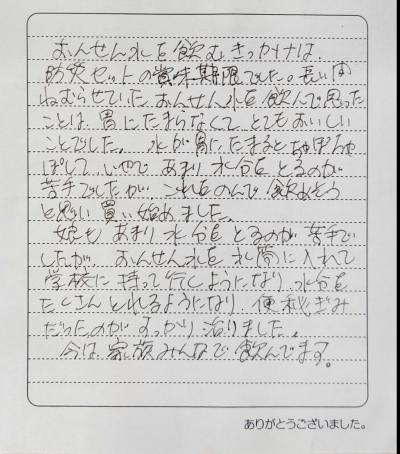 おんせん水を飲むきっかけは、
防災セットの賞味期限でした。長い間
ねむらせていたおんせん水を飲んで思った
ことは胃にたまらなくて、とてもおいしい
ことでした。水が胃にたまるとちゃぽちゃ
ぽして、いやで あまり水分をとるのが
苦手でしたが、これをのんで飲めそう
と思い買い始めました。
娘もあまり水分をとるのが苦手で
したが、おんせん水を水筒に入れて
学校に持って行くようになり、水分を
たくさんとれるようになり、便秘ぎみ
だったのがすっかり治りました。
今は、家族みんなで飲んでます。
ありがとうございました。